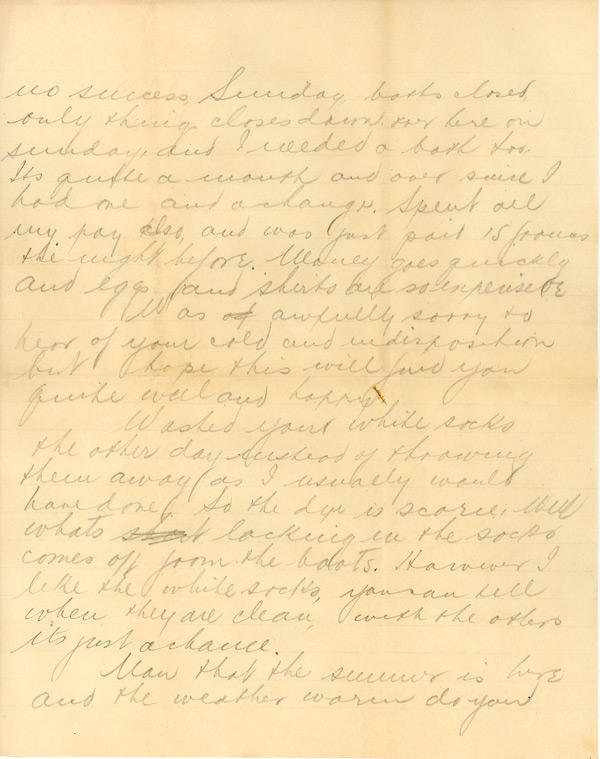 no success, Sunday baths closed,
only thing closes down over here on
sunday, and I needed a bath too.
Its quite a month and over since I
had one and a change. Spent all
my pay also, and was just paid 15 francs
the night before. Money goes quickly
and eggs and shirts are so expensive
Was awfully sorry to
hear of your cold and indisposition
but hope this will find you
quite well and happy
Washed your white socks
the other day instead of throwing
them away (as I usually would
have done). So the dye is scarce; Well
whats lacking in the socks
comes off from the boots. However I
like the white socks, you can tell
when they are clean, with the others
its just a chance.
Man that the summer is here
and the weather warm do you